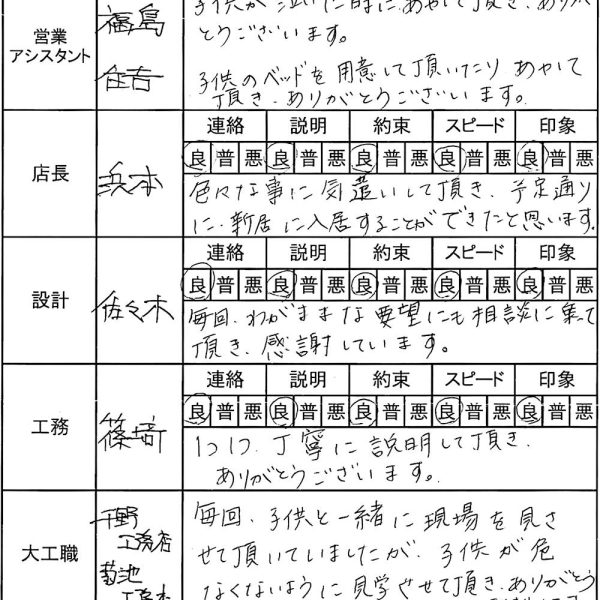 子供が泣いた時にあやして頂き、ありが
とうございます。
営業
アシスタント
福島
住吉
子供のベッドを用意して頂いたり あやして
頂き、ありがとうございます。
連絡 説明 約束 スピード 印象
店長
浜本
良 普 悪 良 普 悪 良 普 悪 良 普 悪 良 普 悪
色々な事に気遣いして頂き、予定通り
に、新居に入居することができたと思います。
連絡 説明 約束 スピード 印象
設計
佐々木
良 普 悪 良 普 悪 良 普 悪 良 普 悪 良 普 悪
毎回、わがままな要望にも相談に乗って
頂き、感謝しています。
連絡 説明 約束 スピード 印象
工務
篠崎
良 普 悪 良 普 悪 良 普 悪 良 普 悪 良 普 悪
1つ1つ、丁寧に説明して頂き、
ありがとうございます。
大工職
千野
工務店
菊池
毎回、子供と一緒に現場を見さ
せて頂いていましたが、子供が危
なくないように見学させて頂き、ありがとう